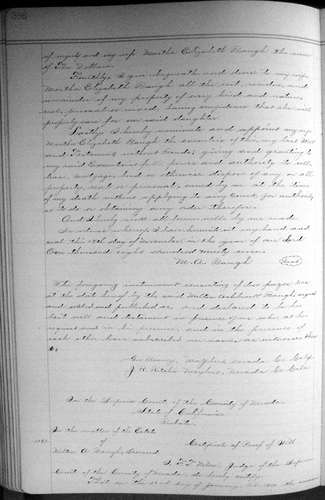 of myself and my wife Martha Elizabeth Baugh the sum
of Ten Dollars.
Fourthly: I give bequeath and devise to my wife
Martha Elizabeth Baugh all the rest, residue, and
remainder of my property of every kind and nature
real, personal or mixed, having confidence that she will
properly care for our said daughter.
Lastly: I hereby nominate and appoint my wife
Martha Elizabeth Baugh the executrix of this my last Will
and Testament without bonds, giving and granting to
my said Executrix full power and authority to sell
lease, mortgage, bond or otherwise dispose of any or all
property, real or personal, owned by me at the time
of my death without applying to any Court for authority
so to do or obtaining any order therefor.
And I hereby revoke all former wills by me made
In witness whereof I have hereunto set my hand and
seal this 17th day of November in the year of our Lord
One thousand eight hundred ninety seven.
M. A. Baugh (Seal)
The foregoing instrument consisting of two pages was
at the date hereof by the said Milton Archibald Baugh signed
and sealed and published as, and declared to be his
last will and testament in presence of us who at his
request and in his presence, and in the presence of
each other have subscribed our names as witnesses there
to,
Maybert Nevada Co Calif
J. R. Ritchie Maybert, Nevada Co Cala
In the Superior Court of the County of Nevada,
State of California
Probate.
In the matter of the Estate
of
Milton A. Baugh, deceased
Certificate of Proof of Will.
I, F. T. Nilon, Judge of the Superior
Court of the County of Nevada do hereby certify:
That on the 22nd day of January